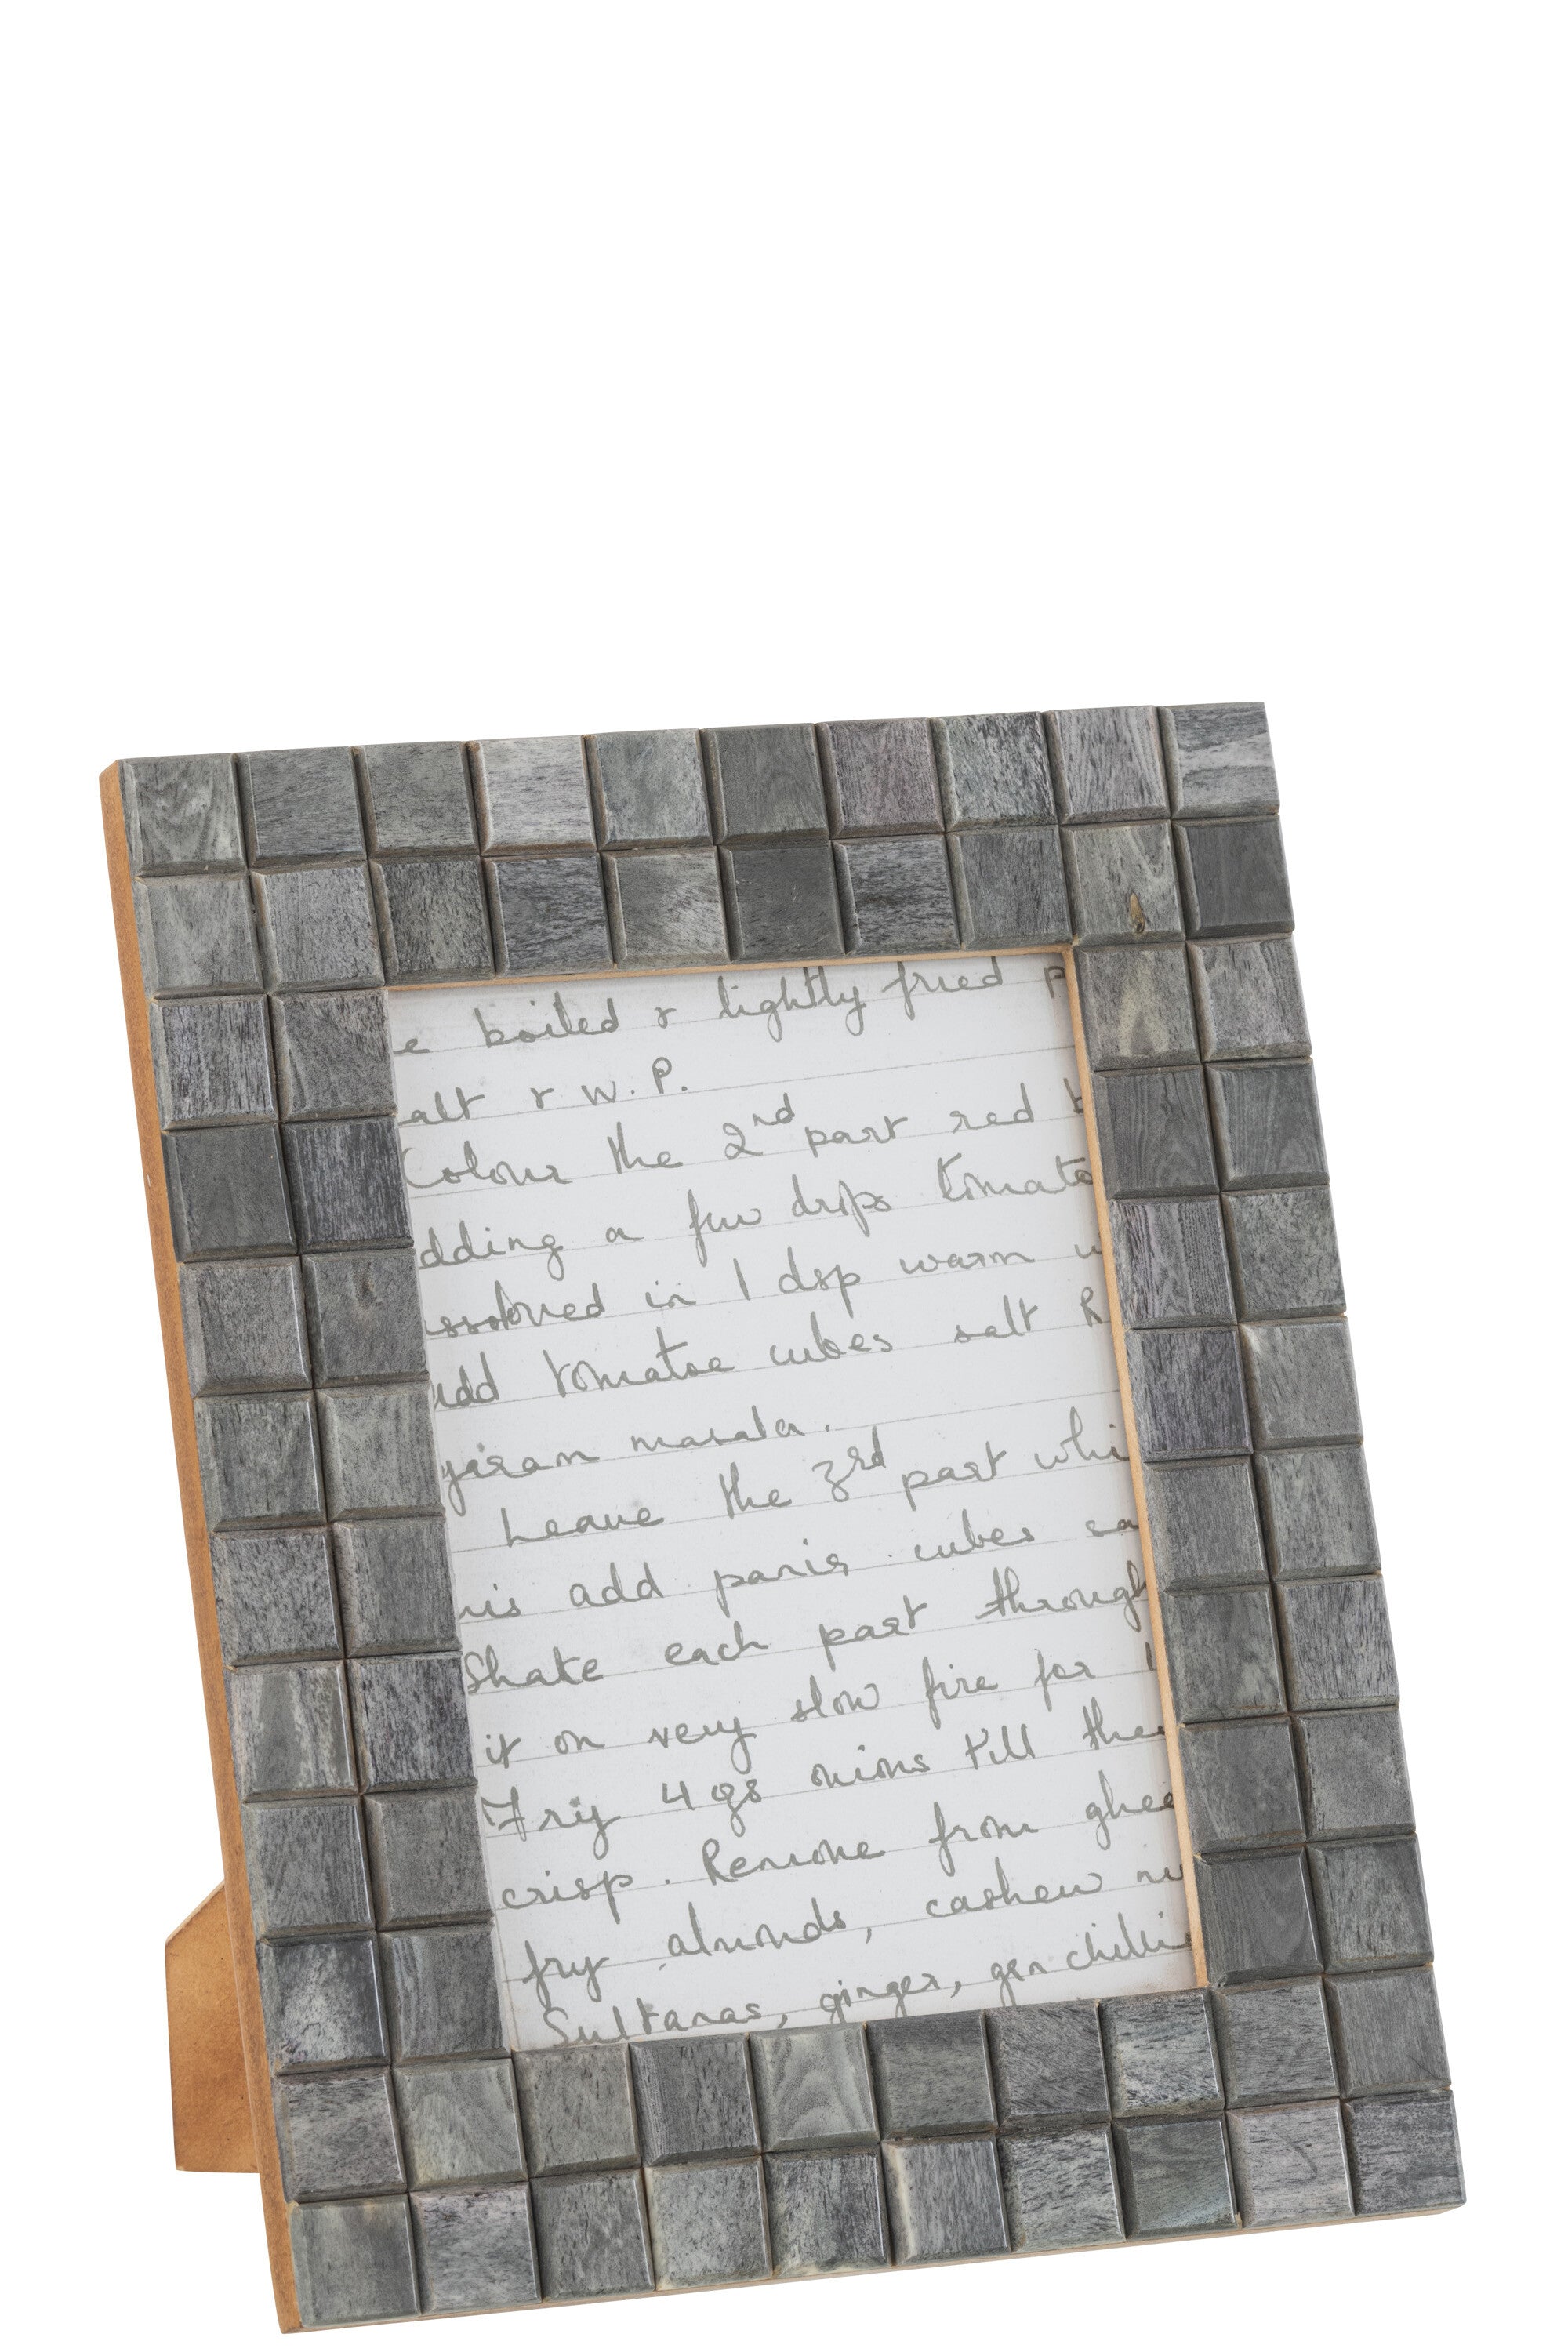 e boiled & lightly fried p
alt & W.P.
Colour the 2nd part red b
dding a few drops tomato
ssolved in 1 dsp warm w
add tomatoe cubes salt R
garam masala.
Leave the 3rd part whi
his add panir cubes sa
Shake each part through
it on very slow fire for 1
Fry 4 onions till the
crisp. Remove from ghee
fry almonds, cashew nu
Sultanas, ginger, grn chilli